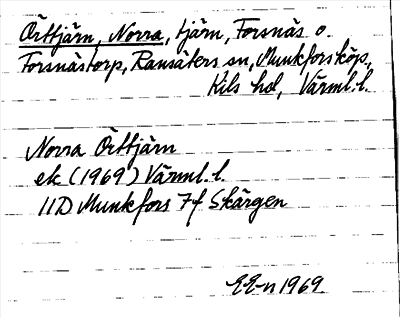 Örttjärn, Norra, tjärn, Forsnäs o.
Forsnästorp, Ransäters sn, Munkforsköp.,
Kils hd, Värml. l.
Norra Örttjärn
ek (1969) Värml. l.
11D Munkfors 7f Skärgen
EE-n 1969